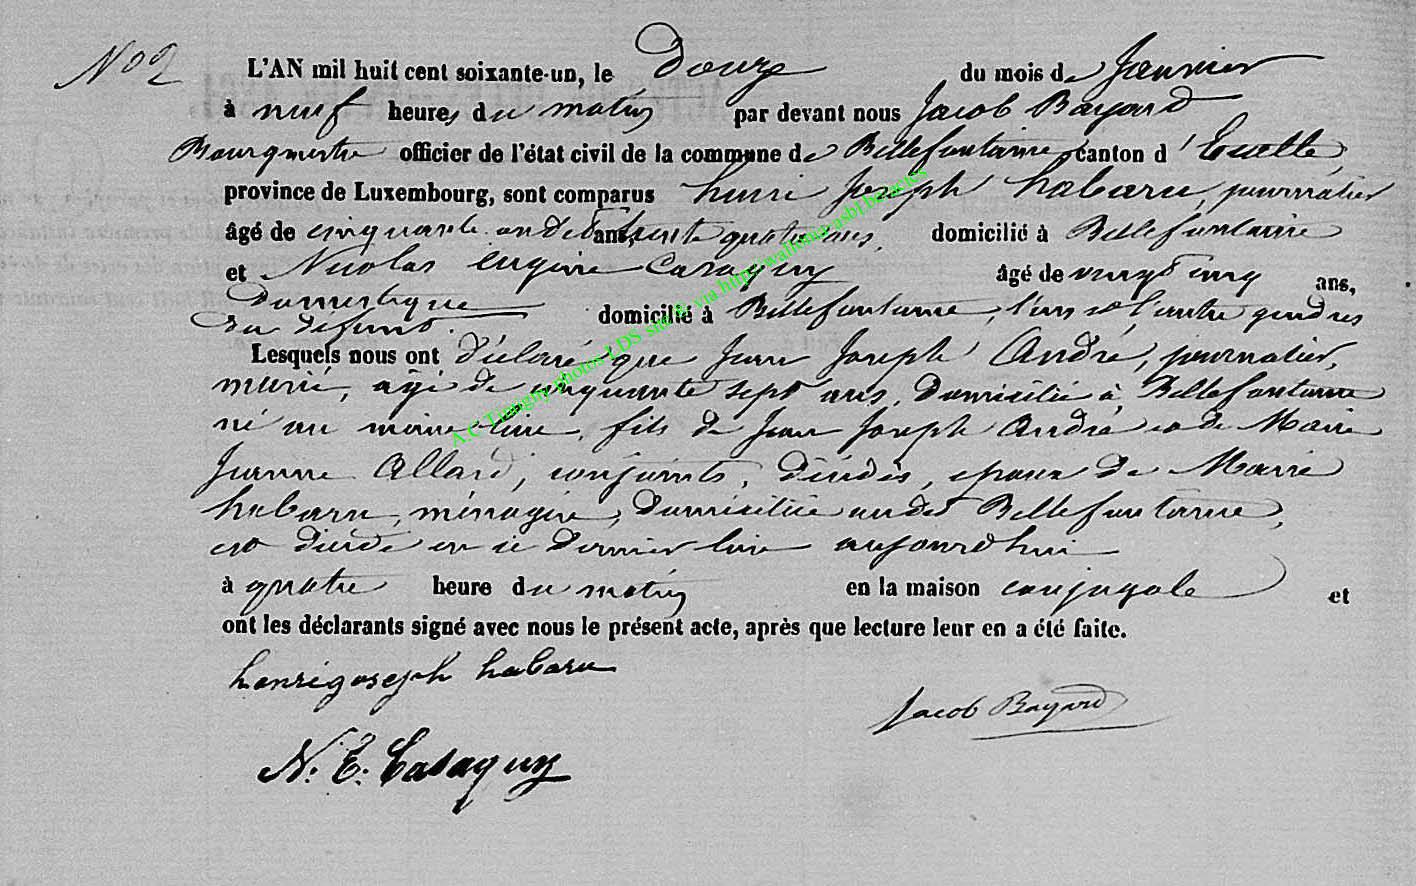 No 2
L'AN mil huit cent soixante-un, le Douze du mois de Janvier
à neuf heures du matin par devant nous Jacob Bayard
Bourgmestre officier de l'état civil de la commune de Bellefontaine canton d'Etalle
province de Luxembourg, sont comparus henri Joseph habaru, journalier
âgé de cinquante ans, trente quatre ans, domicilié à Bellefontaine
et Nicolas Eugène Casaquy âgé de vingt cinq ans,
Domestique domicilié à Bellefontaine, l'un et l'autre gendres
du défunt.
Lesquels nous ont déclaré que Jean Joseph André, journalier,
marié, âgé de cinquante sept ans, domicilié à Bellefontaine
né au même lieu, fils de Jean Joseph André et de Marie
Jeanne Allard, conjoints, décédés, époux de Marie
habaru, ménagère, domiciliée audit Bellefontaine,
est décédé en ce dernier lieu aujourd'hui
à quatre heure du matin en la maison conjugale et
ont les déclarants signé avec nous le présent acte, après que lecture leur en a été faite.
henri joseph habaru
Jacob Bayard
N. E. Casaquy
A.C Tintigny photos LDS sur & via http://wallonia-asbl.be/actes